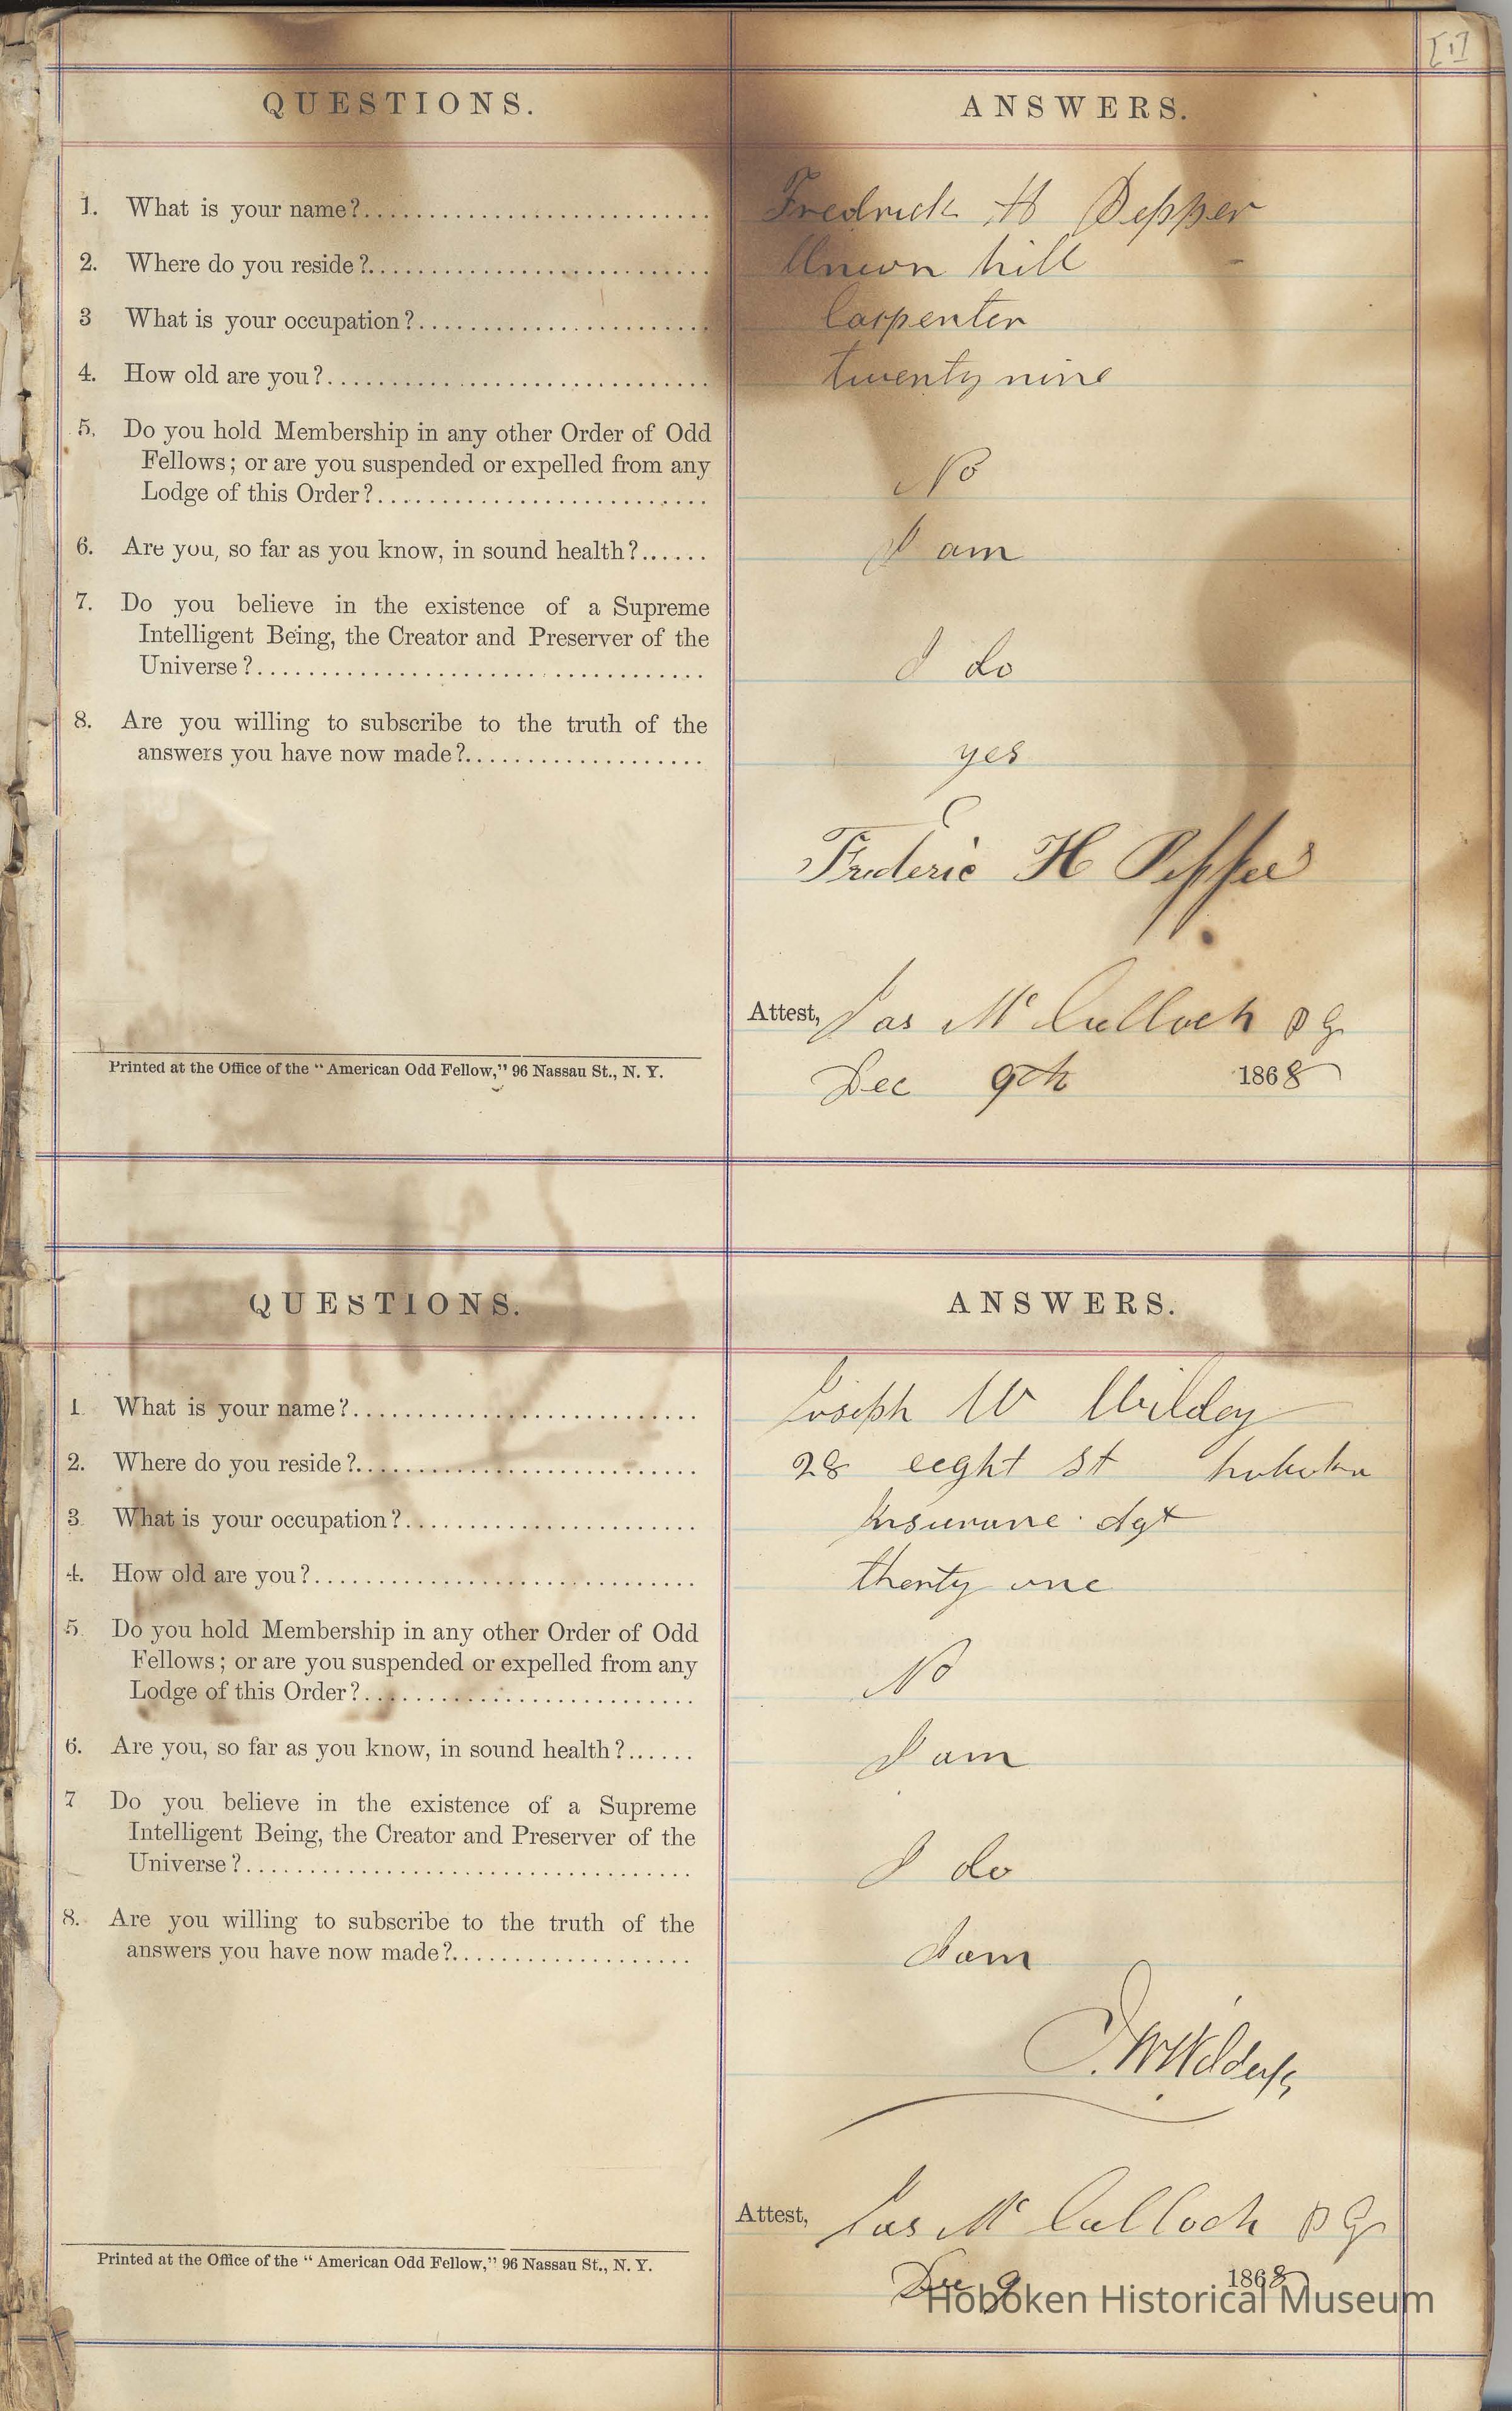 [1]
QUESTIONS. ANSWERS.
1. What is your name?............................ Fredrick H Pepper
2. Where do you reside?............................ Union hill
3 What is your occupation?............................ Carpenter
4. How old are you?............................ twenty nine
5. Do you hold Membership in any other Order of Odd
Fellows; or are you suspended or expelled from any
Lodge of this Order?............................ No
6. Are you, so far as you know, in sound health?...... I am
7. Do you believe in the existence of a Supreme
Intelligent Being, the Creator and Preserver of the
Universe?............................ I do
8. Are you willing to subscribe to the truth of the
answers you have now made?.................... yes
Frederic H
Attest, Jas McCulloch P G
Printed at the Office of the "American Odd Fellow," 96 Nassau St., N. Y.
Dec 9th 1868
QUESTIONS. ANSWERS.
1. What is your name?............................ Joseph W Wildey
2. Where do you reside?............................ 28 eeght st hoboken
3. What is your occupation?............................ Insurane Agt
4. How old are you?............................ therty one
5. Do you hold Membership in any other Order of Odd
Fellows; or are you suspended or expelled from any
Lodge of this Order?............................ No
6. Are you, so far as you know, in sound health?...... I am
7 Do you believe in the existence of a Supreme
Intelligent Being, the Creator and Preserver of the
Universe?............................ I do
8. Are you willing to subscribe to the truth of the
answers you have now made?.................... I am
Attest, Jas McCulloch P G
Printed at the Office of the "American Odd Fellow," 96 Nassau St., N. Y.
Dec 9 1868
Hoboken Historical Museum